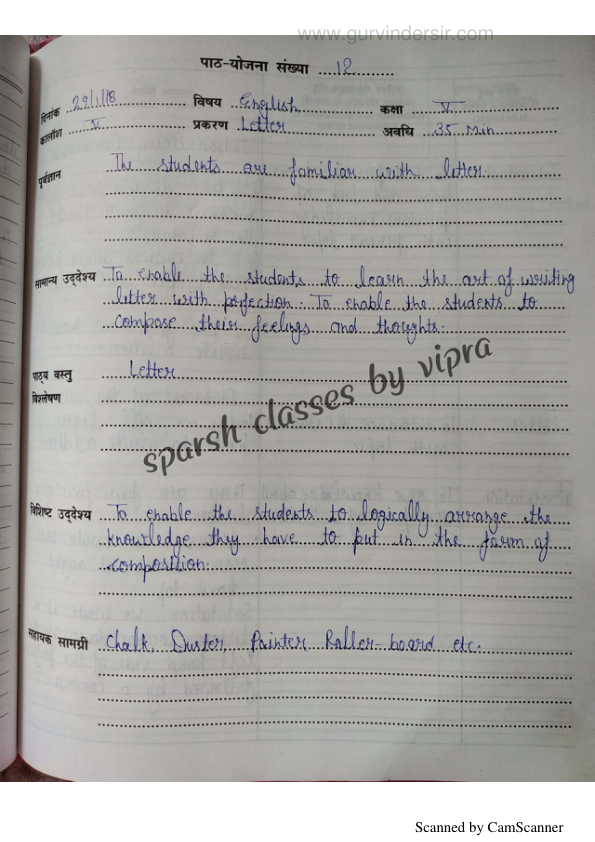 www.gurvindersir.com
पाठ-योजना संख्या ....12..........
दिनांक ..29/1/18.......... विषय ..English.......... कक्षा ....V..........
कालांश ....V.......... प्रकरण .Letter.......... अवधि ..35 Min...
पूर्वज्ञान The students are familiar with letter.
सामान्य उद्देश्य To enable the students to learn the art of writing
letter with perfection. To enable the students to
compose their feelings and thoughts.
पाठ्य वस्तु Letter
विश्लेषण
sparsh classes by vipra
विशिष्ट उद्देश्य To enable the students to logically arrange the
knowledge they have to put in the form of
composition.
सहायक सामग्री Chalk, Duster, Painter Roller-board etc.
Scanned by CamScanner